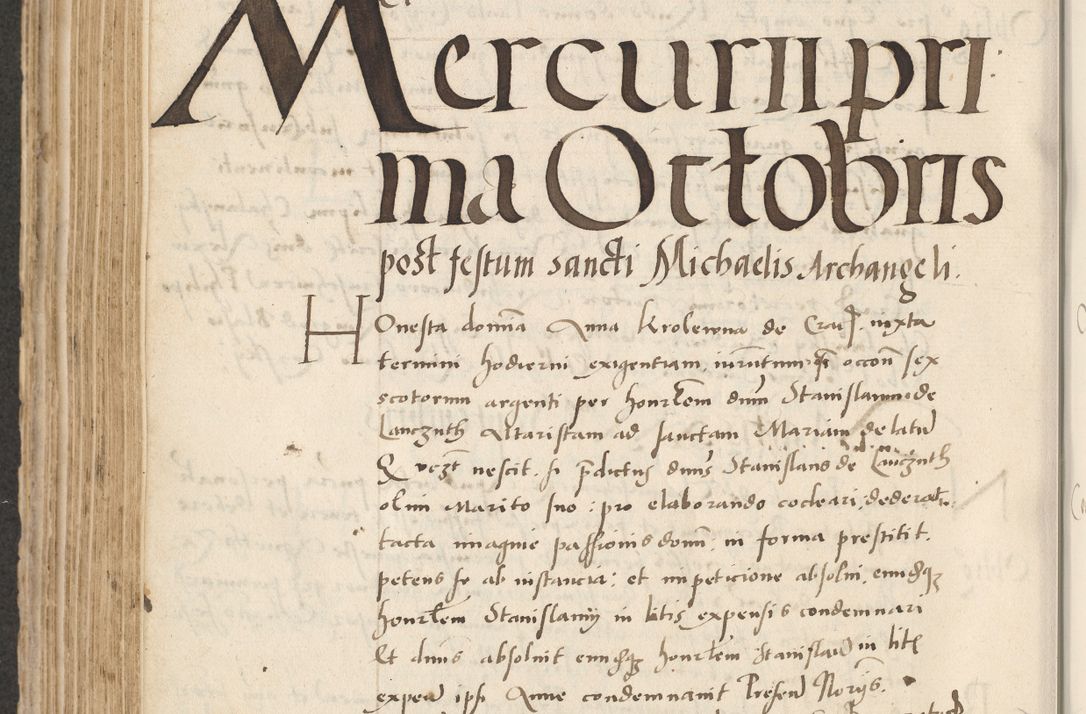 Mercurii pri
ma Octobris
post festum sancti Michaelis Archangeli.
Honesta domĩa Anna Krolewna de iuxta
termini hodierni exigentiam, occoñ sex
scotorum argenti per honrłem dnũm Stanislaum de
Lanczuth Altaristam ad sanctam Mariam de latũ
Q nescit. si p̃dictus dnũs Stanislaus de Lanczuth
olim Marito suo: pro elaborando cocleari; dederat
tacta imagine passionis domñ. in forma prestitit.
petens se ab instancia; et impeticione absolui, eundẽqȝ
honrłem Stanislaum in litis expensis condemnari
Et dnũs absoluit eundẽqȝ honrłem Stanislaũ in
expeñ ipsi Anne condemnauit Preseñ Norijs.